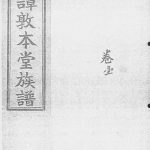 譚敦本堂族譜
卷圡